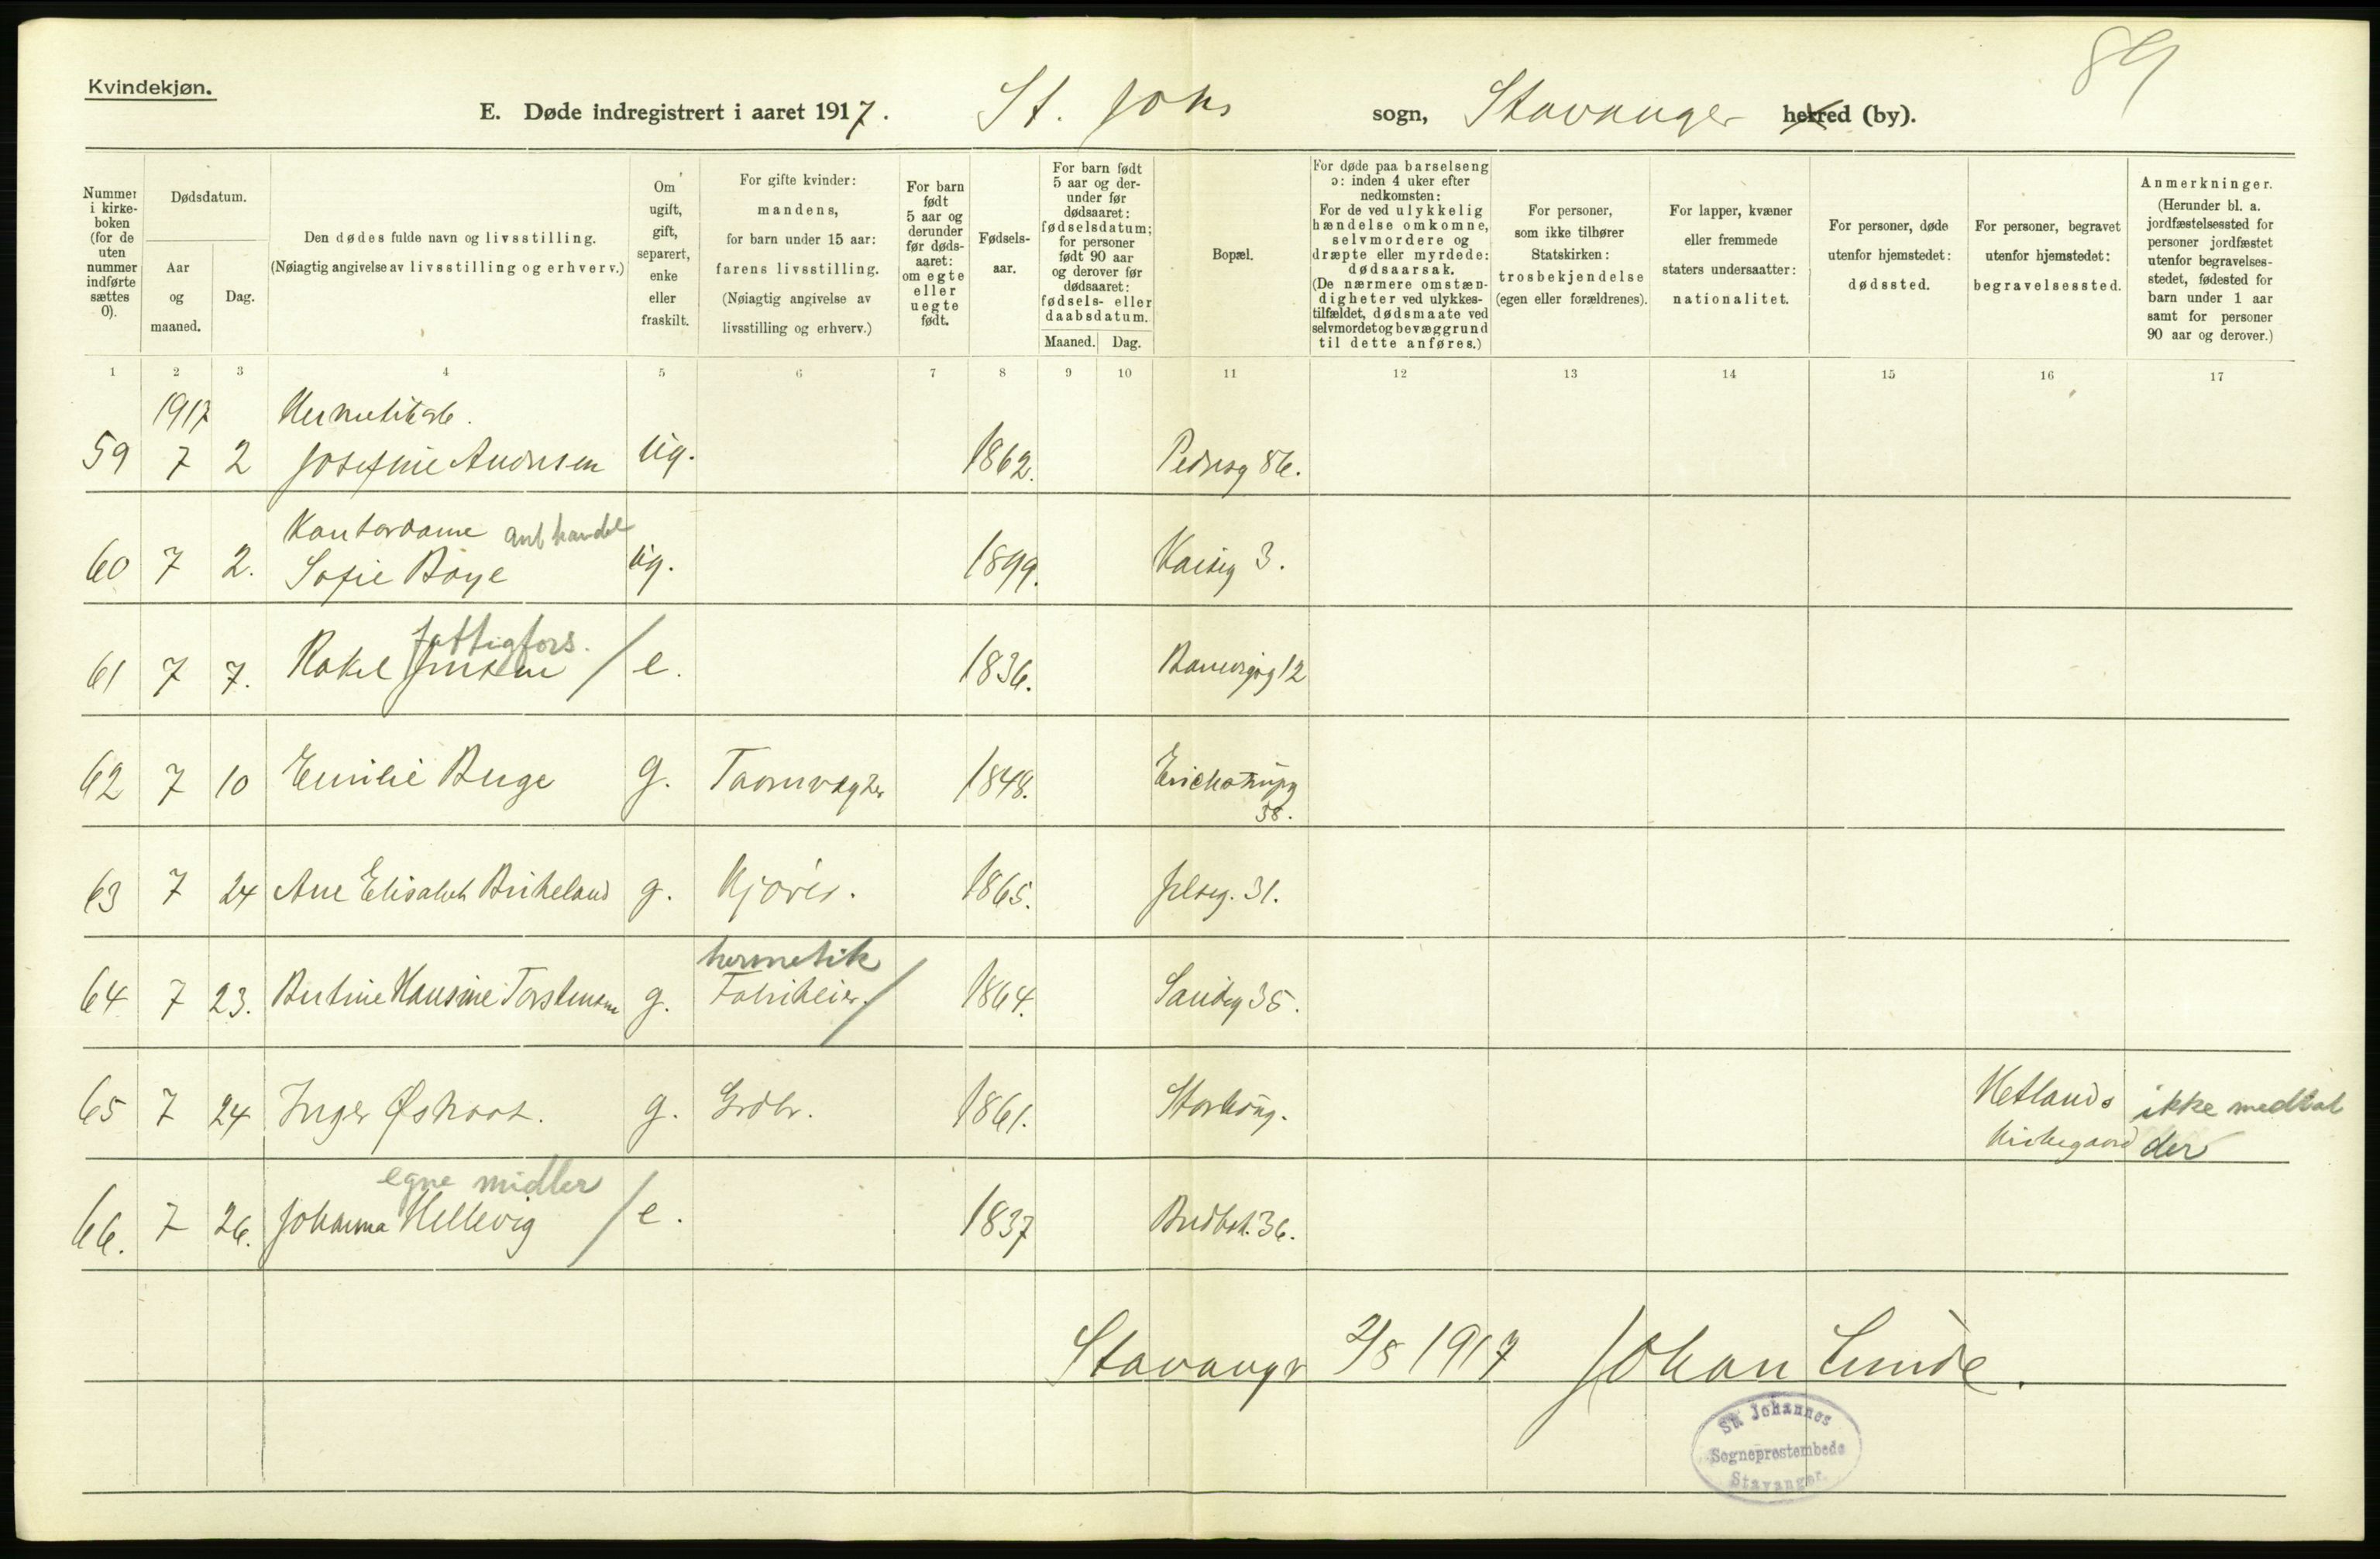 89
Kvindekjøn.
E. Døde indregistrert i aaret 1917. St. Johs sogn, Stavanger herred (by).
Nummer i kirkeboken (for de uten nummer indførte sættes 0).
Dødsdatum.
Aar og maaned.
Dag.
Den dødes fulde navn og livsstilling.
(Nøiagtig angivelse av livsstilling og erhverv.)
Om ugift, gift, separert, enke eller fraskilt.
For gifte kvinder: mandens, for barn under 15 aar: farens livsstilling. (Nøiagtig angivelse av livsstilling og erhverv.)
For barn født 5 aar og derunder før dødsaaret: om egte eller uegte født.
Fødselsaar.
For barn født 5 aar og derunder før dødsaaret: fødselsdatum; for personer født 90 aar og derover før dødsaaret: fødsels- eller daabsdatum.
Maaned. Dag.
Bopæl.
For døde paa barselseng ɔ: inden 4 uker efter nedkomsten: For de ved ulykkelig hændelse omkomne, selvmordere og dræpte eller myrdede: dødsaarsak. (De nærmere omstændigheter ved ulykkestilfældet, dødsmaate ved selvmordet og bevæggrund til dette anføres.)
For personer, som ikke tilhører Statskirken: trosbekjendelse (egen eller forældrenes).
For lapper, kvæner eller fremmede staters undersaatter: nationalitet.
For personer, døde utenfor hjemstedet: dødssted.
For personer, begravet utenfor hjemstedet: begravelsessted.
Anmerkninger. (Herunder bl. a. jordfæstelsessted for personer jordfæstet utenfor begravelsesstedet, fødested for barn under 1 aar samt for personer 90 aar og derover.)
1 2 3 4 5 6 7 8 9 10 11 12 13 14 15 16 17
1917 Hermetikarb.
59 7 2 Josefine Andresen ug. 1862. Pedersg 86.
Kontordame ant handel
60 7 2. Sofie Boye ug. 1899. 3.
fattigfors.
61 7 7. Rakel Jensen / e. 1836. 12
62 7 10 Emilie Buge g. Taarnvægter 1848. Erichstrupg
38.
63 7 24 Ane Elisabet Birkeland g. Kjøres. 1865. Jelseg. 31.
hermetik
64 7 23. Bertine Hansine Torstensen g. Fabrikeier. / 1864. Sandeg 35.
65 7 24 Inger Øshaat. g. Grdbr. 1861. Storhaug. Hetlands ikke medtat
kirkegaard der
egne midler
66. 7 26. Johanna Hellevig / e. 1837 Bredbak. 36.
Stavanger 2/8 1917 Johan Lunde.
St Johannes
Sogneprestembede
Stavanger.